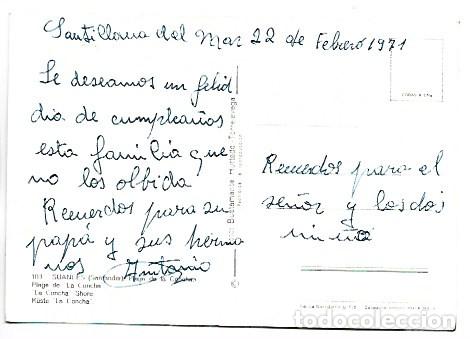 Santillana del Mar 22 de Febrero 1971
Le deseamos un feliđ
dia de cumpleaños
esta familia que
no los olbida
Recuerdos para su
papá y sus herma
nos Antonio
Recuerdos para el
señor y los dos
101 SUANCES (Santander) Playa de la Concha
Plage de "La Concha"
"La Concha" Shore
Küste "La Concha"
Bustamante Hurtado Torrelavega
todocoleccion.net